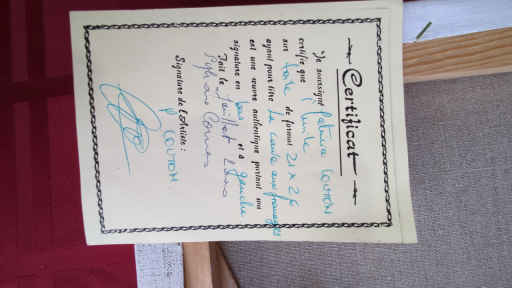 Certificat
Je soussigné Patrice LOUTON
certifie que l'huile
sur toile de format 21 x 26
ayant pour titre La cave aux fromages
est une œuvre authentique portant une
signature en bas et à gauche
Fait le Juillet

Signature de l'Artiste :
P LOUTON